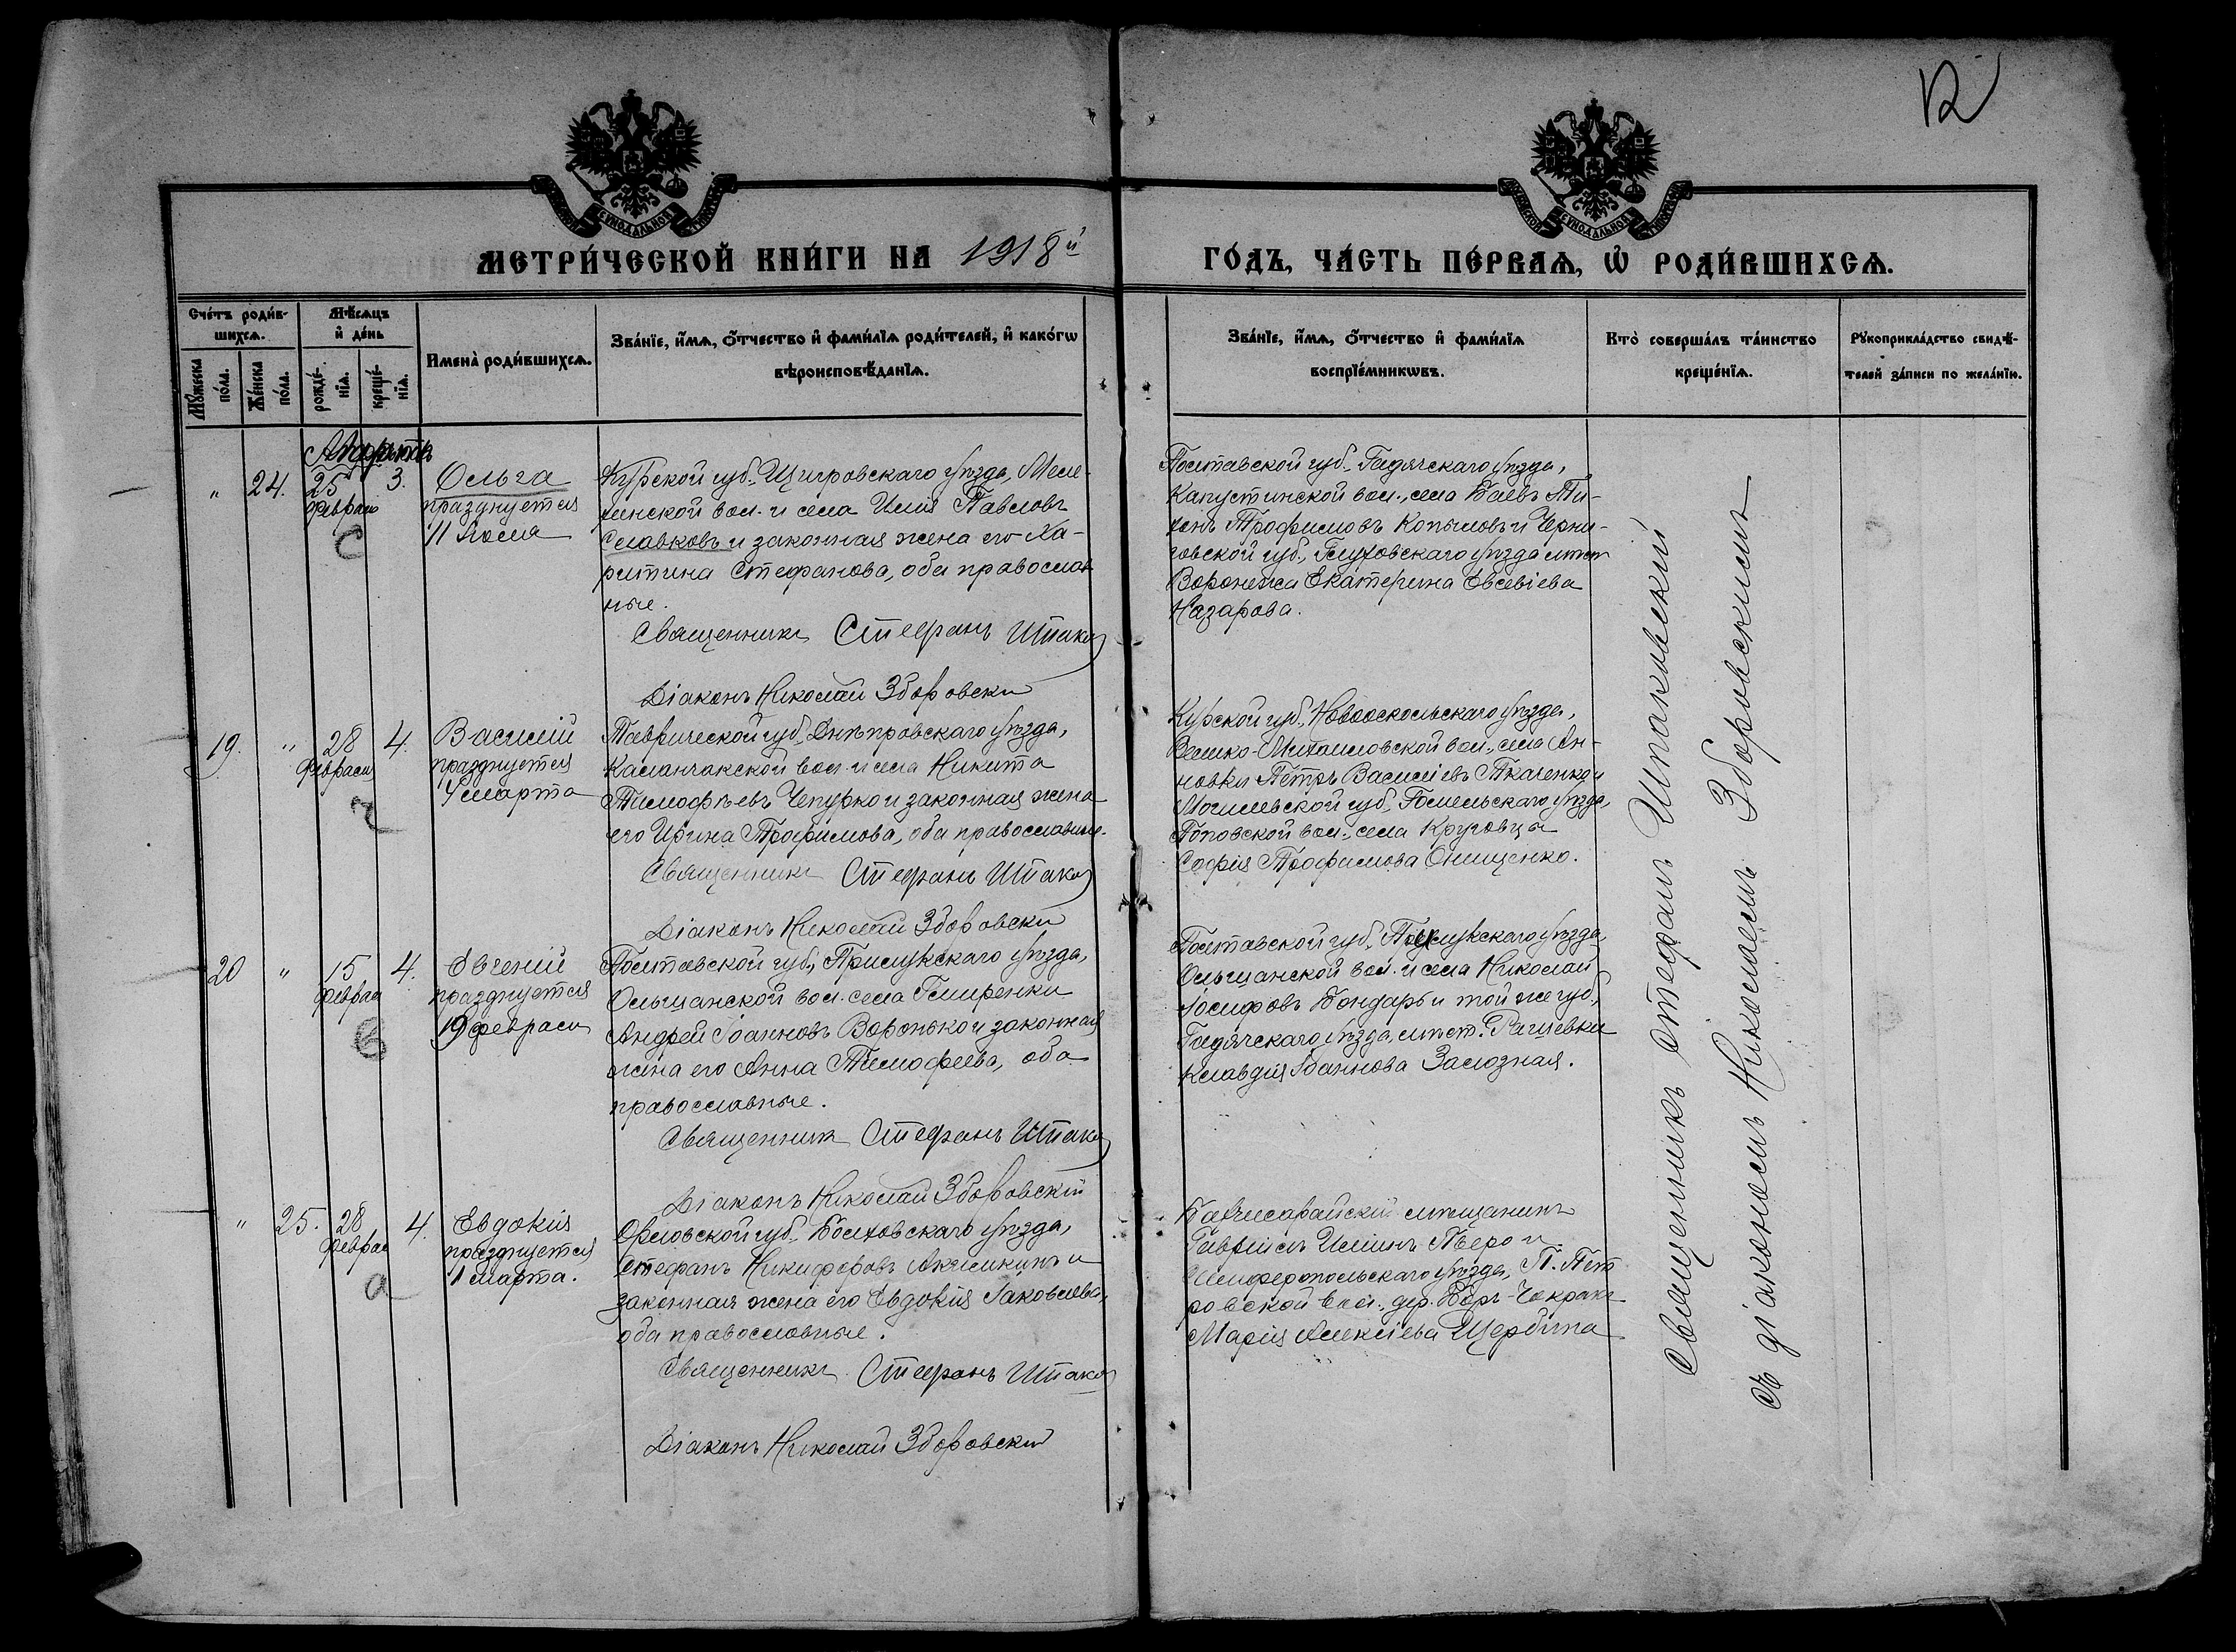 12
МЕТРИ́ЧЕСКОЙ КНИ́ГИ НА 1918й ГО́ДЪ, ЧА́СТЬ ПЕ́РВАѦ, Ѡ҆ РОДИ́ВШИХСѦ.
Сче́тъ роди́в-
шихсѧ.
Мѹ́жеска
по́ла.
Же́нска
по́ла.
Мѣ́сѧцъ
и҆ де́нь
рожде́-
нїѧ.
креще́-
нїѧ.
Имена̀ роди́вшихсѧ.
Зва́нїе, и҆́мѧ, ѻ҆́тчество и҆ фами́лїѧ роди́телей, и҆ како́гѡ
вѣроисповѣ́данїѧ.
Зва́нїе, и҆́мѧ, ѻ҆́тчество и҆ фами́лїѧ
воспрїе́мникѡвъ.
Кто̀ соверша́лъ та́инство
креще́нїѧ.
Рꙋкоприкла́дство свидѣ́-
телей за́писи по жела́нїю.
" 24. 25 3.
Февраля
С
Ольга
празднуется
11 Іюля
Курской губ., Щигровскаго уѣзда, Меле-
хинской вол. и села Илія Павловъ
Славковъ и законная жена его Ха-
ритина Стефанова, оба православ
ные.
Священникъ Стефанъ Шпако
Діаконъ Николай Зборовски
Полтавской губ., Гадячскаго уѣзда,
Капустинской вол., села Баевъ Ти-
хонъ Трофимовъ Копыловъ и Черни-
говской губ., Глуховскаго уѣзда мѣст
Воронежа Екатерина Евсевіева
Назарова.
19. " 28 4.
Февраля
Василій
празднуется
4 марта
Таврической губ., Днѣпровскаго уѣзда,
Каланчакской вол. и села Никита
Тимофѣевъ Чепурко и законная жена
его Ирина Трофимова, оба православные.
Священникъ Стефанъ Шпако
Діаконъ Николай Зборовски
Курской губ., Новооскольскаго уѣзда,
Велико-Михайловской вол., села Ан-
новки Петръ Василіевъ Ткаченко и
Могилевской губ., Гомельскаго уѣзда,
Поповской вол., села Круговца
Софія Трофимова Онищенко.
20 " 15 4.
Феврал
Евгеній
празднуется
19 февраля
Полтавской губ., Прилукскаго уѣзда,
Ольшанской вол. села Гмиренки
Андрей Іоанновъ Воропько и законная
жена его Анна Тимофеева, оба
православные.
Священникъ Стефанъ Шпако
Діаконъ Николай Зборовскій
Полтавской губ., Прилукскаго уѣзда,
Ольшанской вол. и села Николай
Іосифовъ Бондарь и той же губ.,
Гадячскаго уѣзда, мѣст. Рашевки
Клавдія Іоаннова Залюзная.
" 25. 28 4.
Феврал
а
Евдокія
празднуется
1 марта.
Орловской губ., Болховскаго уѣзда,
Стефанъ Никифоровъ Акулькинъ и
законная жена его Евдокія Іаковлева,
оба православные.
Священникъ Стефанъ Шпако
Діаконъ Николай Зборовскій
Бахчисарайскій мѣщанинъ
Гавріилъ Иліинъ Перо и
Симферопольскаго уѣзда, П. Пет
ровской вол., дер. Бор-Чокракъ
Марія Алексіева Щербина
Священникъ Стефанъ Шпаковскій
съ діакономъ Николаемъ Зборовскимъ